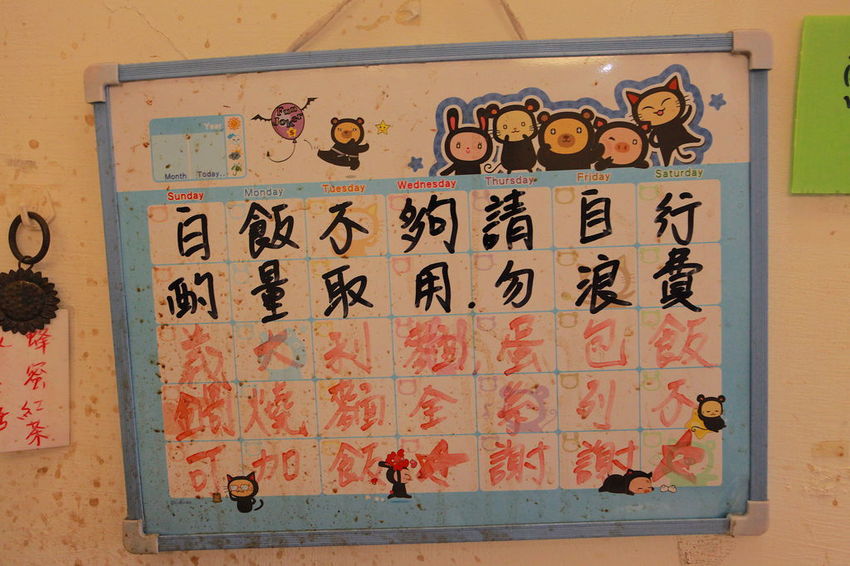 Fun
lover
Year
Month Today..
Sunday Monday Tuesday Wednesday Thursday Friday Saturday
白飯不夠請自行
酌量取用.勿浪費
義大利麵蛋包飯
鍋燒麵全系列不
可加飯★謝謝★
蜂蜜紅茶